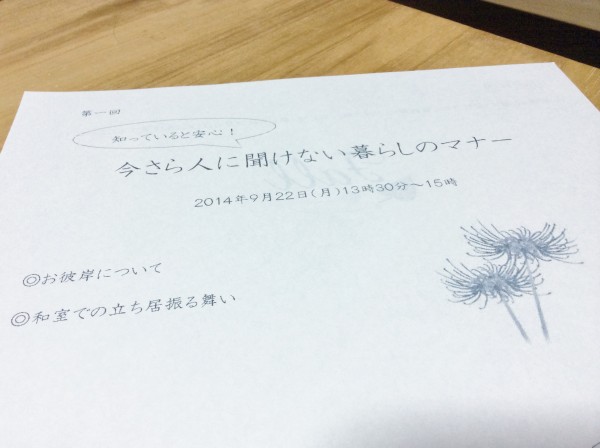 第一回
知っていると安心！
今さら人に聞けない暮らしのマナー
2014年9月22日(月)13時30分～15時
◎お彼岸について
◎和室での立ち居振る舞い